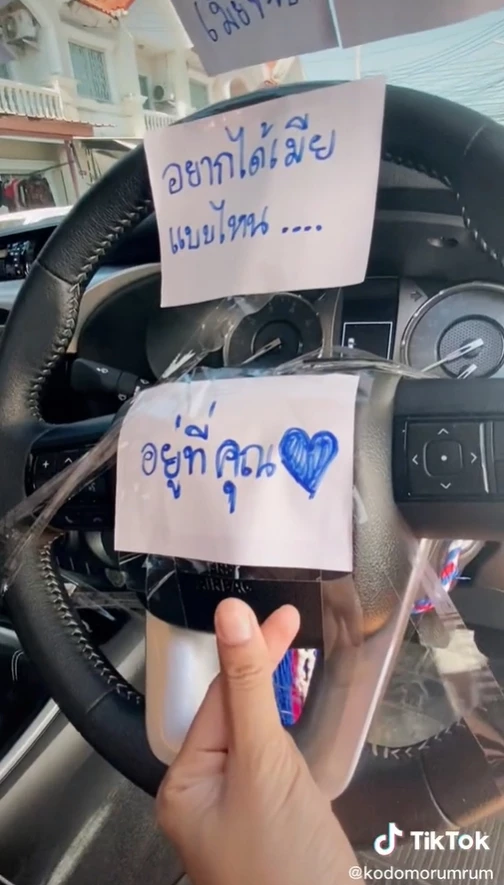 อยากได้เมีย
แบบไหน ....
อยู่ที่คุณ
AIRBAG
TikTok
@kodomorumrum